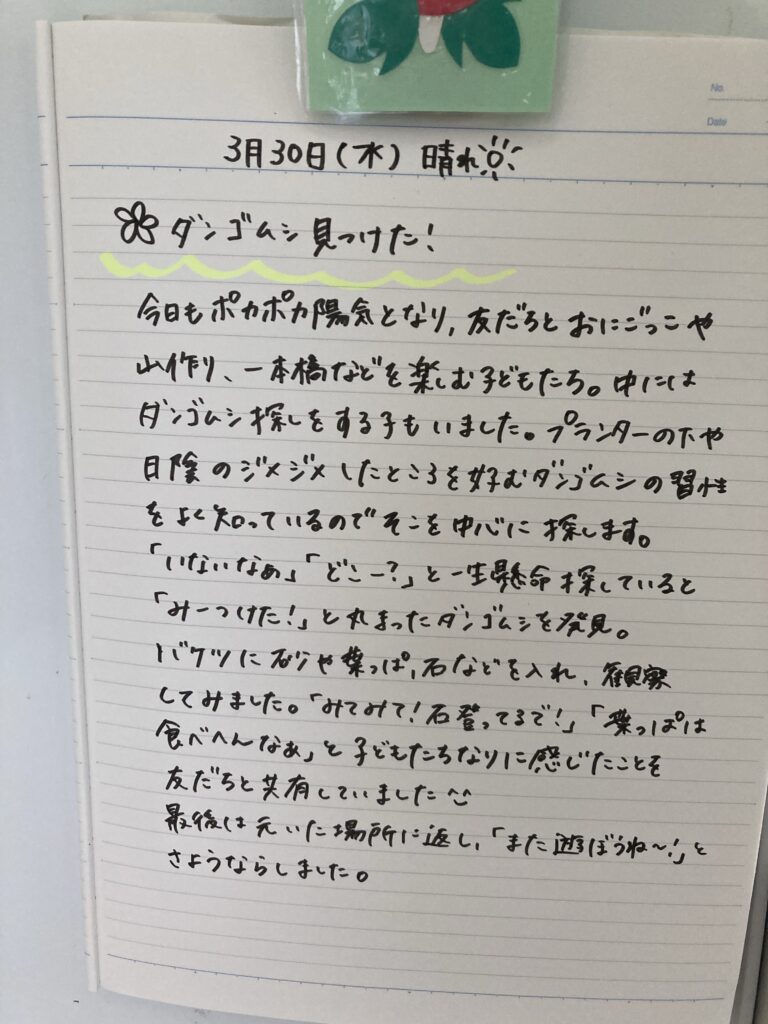 No.
Date
3月30日(水) 晴れ
ダンゴムシ見つけた!
今日もポカポカ陽気となり,友だちとおにごっこや
山作り、一本橋などを楽しむ子どもたち。中には
ダンゴムシ探しをする子もいました。プランターの下や
日陰のジメジメしたところを好むダンゴムシの習性
をよく知っているのでそこを中心に探します。
「いないなぁ」「どこー?」と一生懸命探していると
「みーつけた!」と丸まったダンゴムシを発見。
バケツに砂や葉っぱ,石などを入れ、観察
してみました。「みてみて!石登ってるで!」「葉っぱは
食べへんなぁ」と子どもたちなりに感じたことを
友だちと共有していました
最後は元いた場所に返し、「また遊ぼうね〜!」と
さようならしました。